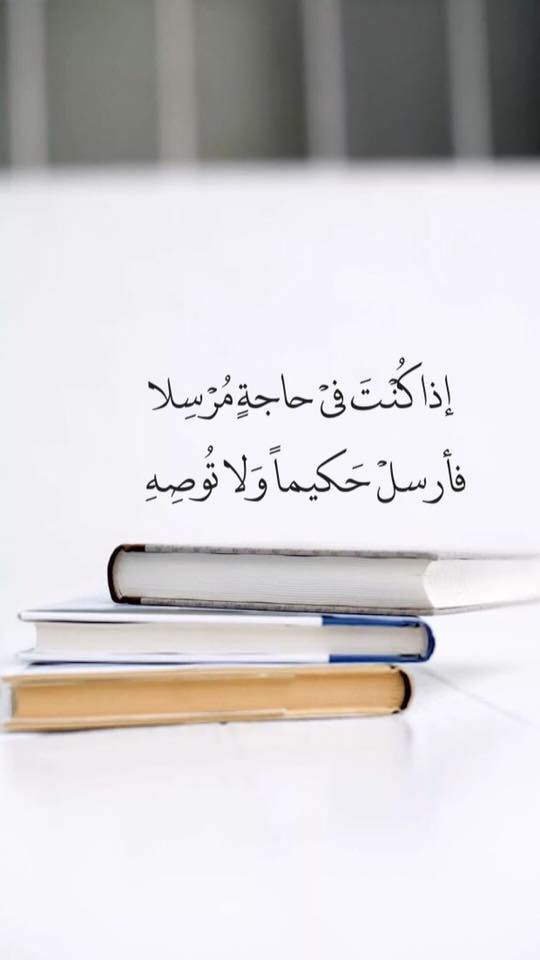 إذا كُنْتَ فىْ حاجةٍ مُرْسِلا
فأرسلْ حَكيماً وَلا تُوصِهِ